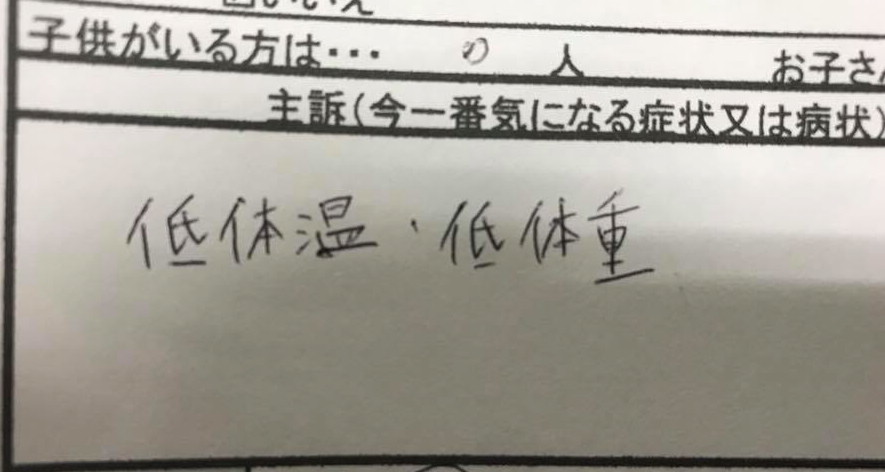 いいえ
子供がいる方は… 0 人 お子さ
主訴(今一番気になる症状又は病状)
低体温・低体重